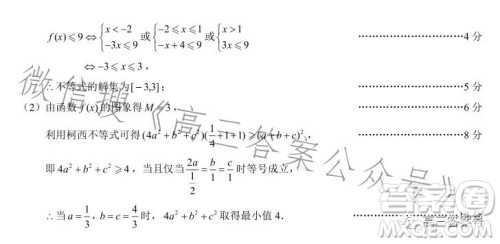 f(x)⩽9⇔{x<-2 -3x⩽9 或{-2⩽x⩽1 -x+4⩽9 或{x>1 3x⩽9 ……4分
⇔-3⩽x⩽3，
∴不等式的解集为[-3,3]； ……5分
（2）由函数f(x)的图象得M=3， ……6分
利用柯西不等式可得(4a²+b²+c²)(1/4+1+1)⩾(a+b+c)²， ……8分
即4a²+b²+c²⩾4，当且仅当2a/(1/2)=b/1=c/1时等号成立，
∴当a=1/3，b=c=4/3时，4a²+b²+c²取得最小值4.
微信搜《高三答案公众号》